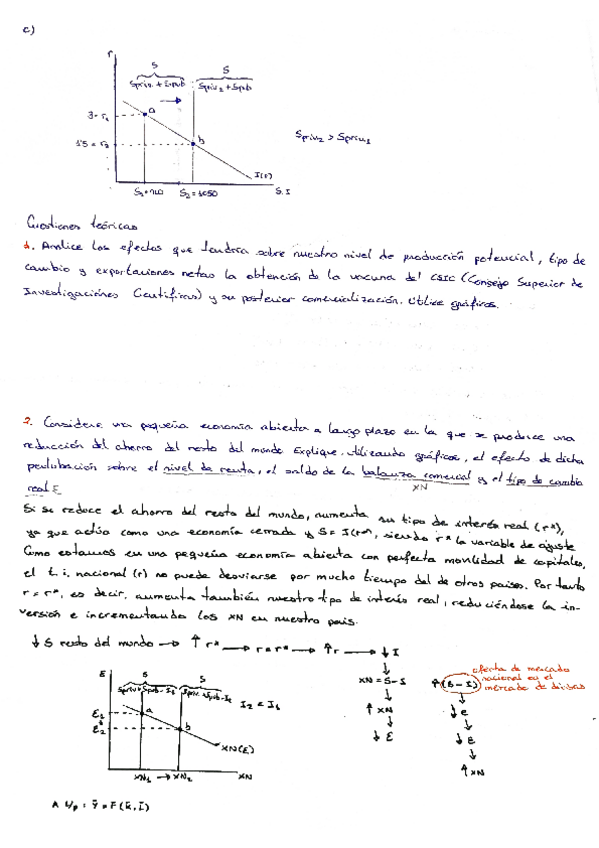 c)
r
S S
Spriv₁ + Spub Spriv₂ + Spub
a
3 = r₁
b
1'5 = r₂
Spriv₂ > Spriv₁
I(r)
S₂ = 1050 S, I
Cuestiones teóricas
1. Analice los efectos que tendría sobre nuestro nivel de producción potencial, tipo de
cambio y exportaciones netas la obtención de la vacuna del CSIC (Consejo Superior de
Investigaciones Científicas) y su posterior comercialización. Utilice gráficos.
2. Considere una pequeña economía abierta a largo plazo en la que se produce una
reducción del ahorro del resto del mundo. Explique utilizando gráficos, el efecto de dicha
perturbación sobre el nivel de renta, el saldo de la balanza comercial y el tipo de cambio
real ε XN
Si se reduce el ahorro del resto del mundo, aumenta su tipo de interés real (r*),
ya que actúa como una economía cerrada y S = I(r*), siendo r* la variable de ajuste
Como estamos en una pequeña economía abierta con perfecta movilidad de capitales,
el t. i. nacional (r) no puede desviarse por mucho tiempo del de otros países. Por tanto
r = r*, es decir, aumenta también nuestro tipo de interés real, reduciéndose la in-
versión e incrementando los XN en nuestro país.
↓ S resto del mundo → ↑ r* → r = r* → ↑ r → ↓ I
oferta de mercado
nacional en el
mercado de divisas
XN = S - I ↑(S - I)
↑ XN ↓ e
↓ ε ↓ ε
↑ XN
ε
S S
Spriv + Spub - I₁ Spriv + Spub - I₂ I₂ < I₁
ε₁ a
ε₂ b
XN(ε)
XN₁ → XN₂ XN
A l/p : Ȳ = F(K̄, L̄)